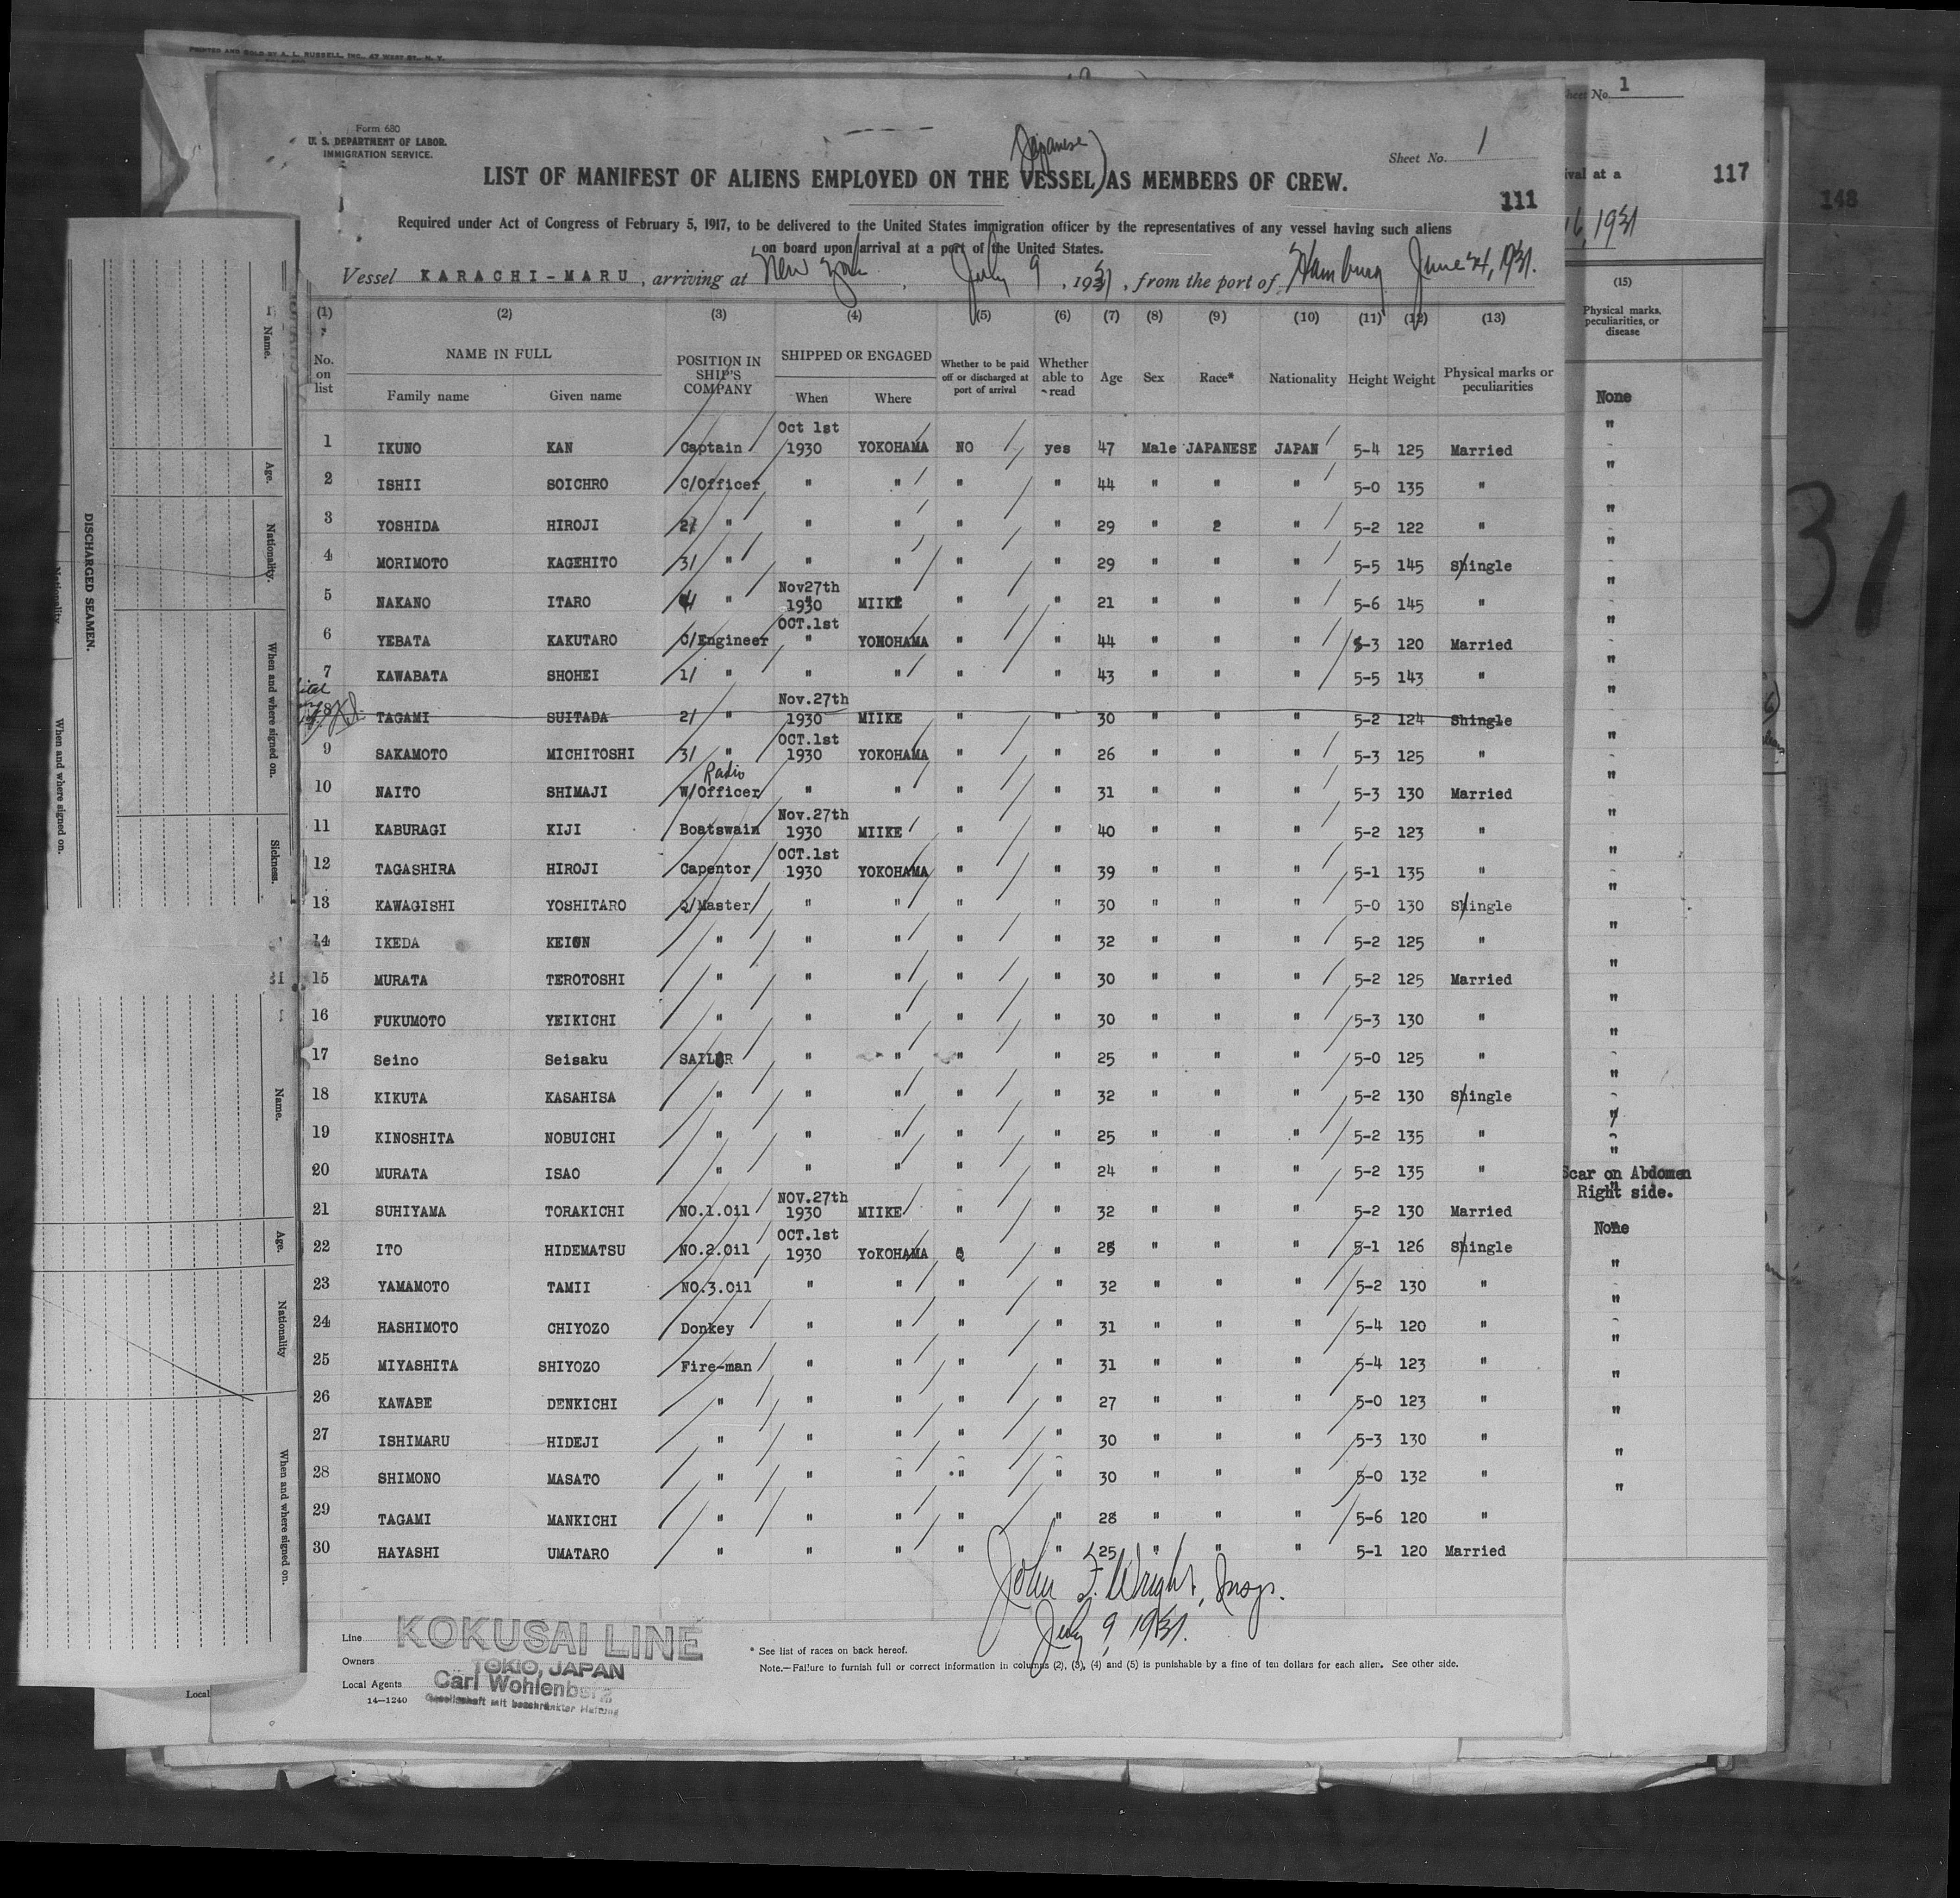 PRINTED AND SOLD BY A. L. RUSSELL, INC., 47 WEST ST., N. Y.
Form 680
U. S. DEPARTMENT OF LABOR.
IMMIGRATION SERVICE.
Sheet No. 1
Japanese
LIST OF MANIFEST OF ALIENS EMPLOYED ON THE VESSEL AS MEMBERS OF CREW.
111
Required under Act of Congress of February 5, 1917, to be delivered to the United States immigration officer by the representatives of any vessel having such aliens
on board upon arrival at a port of the United States.
Vessel KARACHI-MARU, arriving at New York, July 9, 1931, from the port of Hamburg June 24, 1931.
(1) (2) (3) (4) (5) (6) (7) (8) (9) (10) (11) (12) (13)
No. on list
NAME IN FULL
Family name Given name
POSITION IN SHIP'S COMPANY
SHIPPED OR ENGAGED
When Where
Whether to be paid off or discharged at port of arrival
Whether able to read
Age Sex Race* Nationality Height Weight Physical marks or peculiarities
1 IKUNO KAN Captain Oct 1st 1930 YOKOHAMA NO yes 47 Male JAPANESE JAPAN 5-4 125 Married
2 ISHII SOICHRO C/Officer " " " " 44 " " " 5-0 135 "
3 YOSHIDA HIROJI 2/ " " " " " 29 " 2 " 5-2 122 "
4 MORIMOTO KAGEHITO 3/ " " " " " 29 " " " 5-5 145 Shingle
5 NAKANO ITARO 4/ " Nov27th 1930 MIIKE " " 21 " " " 5-6 145 "
6 YEBATA KAKUTARO C/Engineer OCT.1st " YOKOHAMA " " 44 " " " 5-3 120 Married
7 KAWABATA SHOHEI 1/ " " " " " 43 " " " 5-5 143 "
8 TAGAMI SUITADA 2/ " Nov.27th 1930 MIIKE " " 30 " " " 5-2 124 Shingle
9 SAKAMOTO MICHITOSHI 3/ " OCT.1st 1930 YOKOHAMA " " 26 " " " 5-3 125 "
Radio
10 NAITO SHIMAJI W/Officer " " " " 31 " " " 5-3 130 Married
11 KABURAGI KIJI Boatswain Nov.27th 1930 MIIKE " " 40 " " " 5-2 123 "
12 TAGASHIRA HIROJI Capentor OCT.1st 1930 YOKOHAMA " " 39 " " " 5-1 135 "
13 KAWAGISHI YOSHITARO Q/Master " " " " 30 " " " 5-0 130 Shingle
14 IKEDA KEION " " " " " 32 " " " 5-2 125 "
15 MURATA TEROTOSHI " " " " " 30 " " " 5-2 125 Married
16 FUKUMOTO YEIKICHI " " " " " 30 " " " 5-3 130 "
17 Seino Seisaku SAILOR " " " " 25 " " " 5-0 125 "
18 KIKUTA KASAHISA " " " " " 32 " " " 5-2 130 Shingle
19 KINOSHITA NOBUICHI " " " " " 25 " " " 5-2 135 "
20 MURATA ISAO " " " " " 24 " " " 5-2 135 "
21 SUHIYAMA TORAKICHI NO.1.Oil NOV.27th 1930 MIIKE " " 32 " " " 5-2 130 Married
22 ITO HIDEMATSU NO.2.Oil OCT.1st 1930 YoKOHAMA " " 25 " " " 5-1 126 Shingle
23 YAMAMOTO TAMII NO.3.Oil " " " " 32 " " " 5-2 130 "
24 HASHIMOTO CHIYOZO Donkey " " " " 31 " " " 5-4 120 "
25 MIYASHITA SHIYOZO Fire-man " " " " 31 " " " 5-4 123 "
26 KAWABE DENKICHI " " " " " 27 " " " 5-0 123 "
27 ISHIMARU HIDEJI " " " " " 30 " " " 5-3 130 "
28 SHIMONO MASATO " " " " " 30 " " " 5-0 132 "
29 TAGAMI MANKICHI " " " " " 28 " " " 5-6 120 "
30 HAYASHI UMATARO " " " " " 25 " " " 5-1 120 Married
John F. Wright, Insp.
July 9, 1931.
Line KOKUSAI LINE
Owners TOKIO, JAPAN
Local Agents Carl Wohlenberg
Gesellschaft mit beschränkter Haftung
14—1240
* See list of races on back hereof.
Note.—Failure to furnish full or correct information in columns (2), (3), (4) and (5) is punishable by a fine of ten dollars for each alien. See other side.
Sheet No. 1
ival at a
117
16, 1931
(15)
Physical marks, peculiarities, or disease
None
Scar on Abdomen
Right side.
None
148
31
DISCHARGED SEAMEN.
Name.
Age.
Nationality.
When and where signed on.
Sickness.
Nationality
When and where signed on.
Name.
Age.
Nationality
When and where signed on.
Local